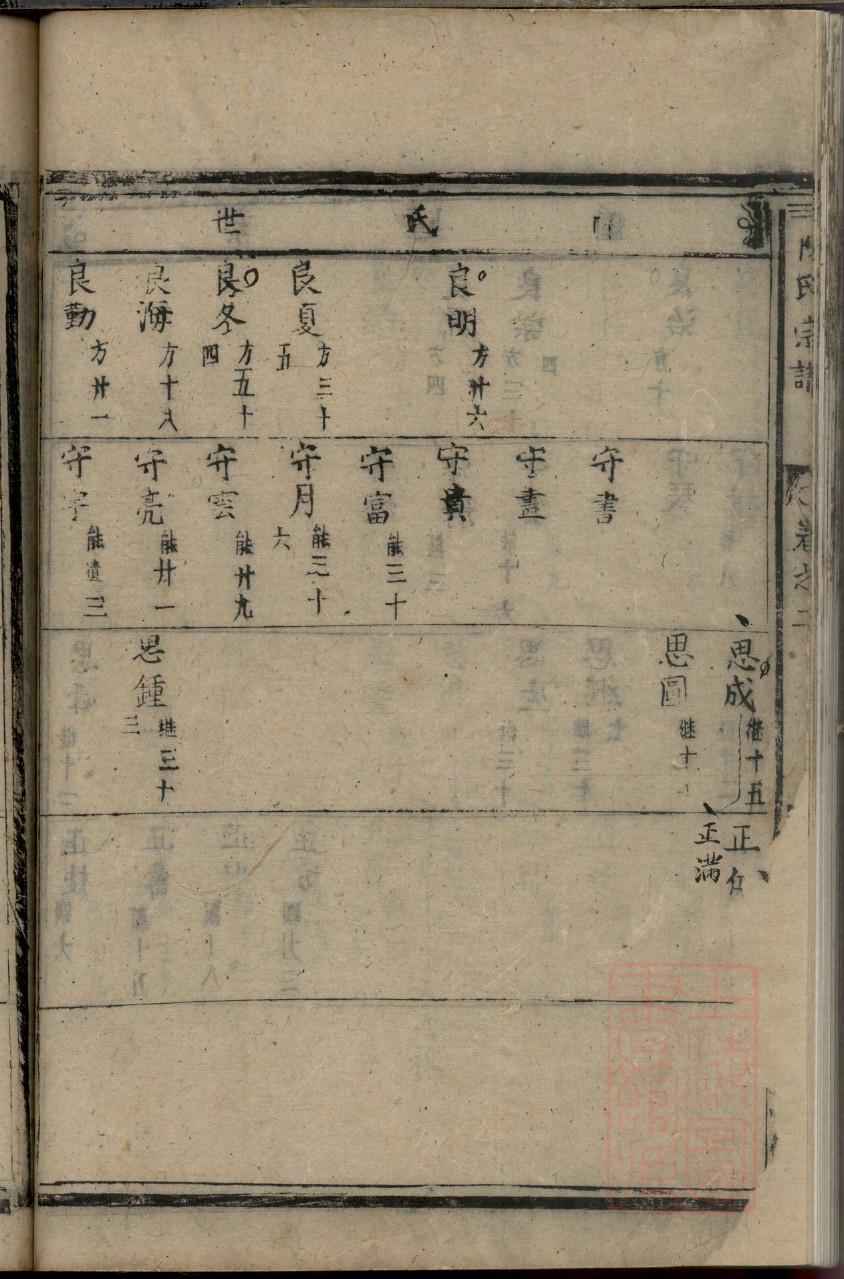 氏
世
良明 方卅六
良夏 方三十五
良冬 方五十四
良海 方十八
良勤 方廿一
守書
守畫
守貴
守富 能三十
守月 能三十六
守雲 能廿九
守亮 能廿一
守宇 能遺三
思成 继十五
思圓 继十
思鍾 继三十三
正
正滿
氏宗譜
卷之二